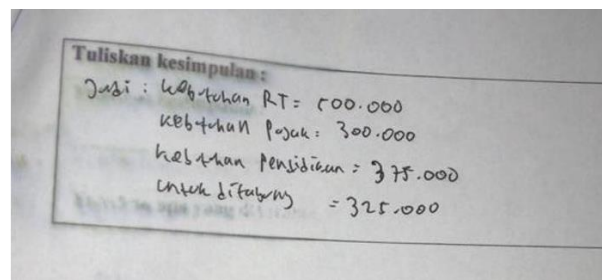 Tuliskan kesimpulan :
Jadi : kebutuhan RT = 500.000
kebutuhan Pajak : 300.000
kebutuhan Pendidikan = 375.000
untuk ditabung = 325.000